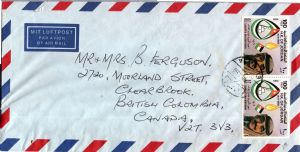 MIT LUFTPOST
PAR AVION
BY AIR MAIL
MR + MRS. B FERGUSON,
2720, MOORLAND STREET,
CLEARBROOK,
BRITISH COLOMBIA,
CANADA,
V2T. 3V3.
100
100